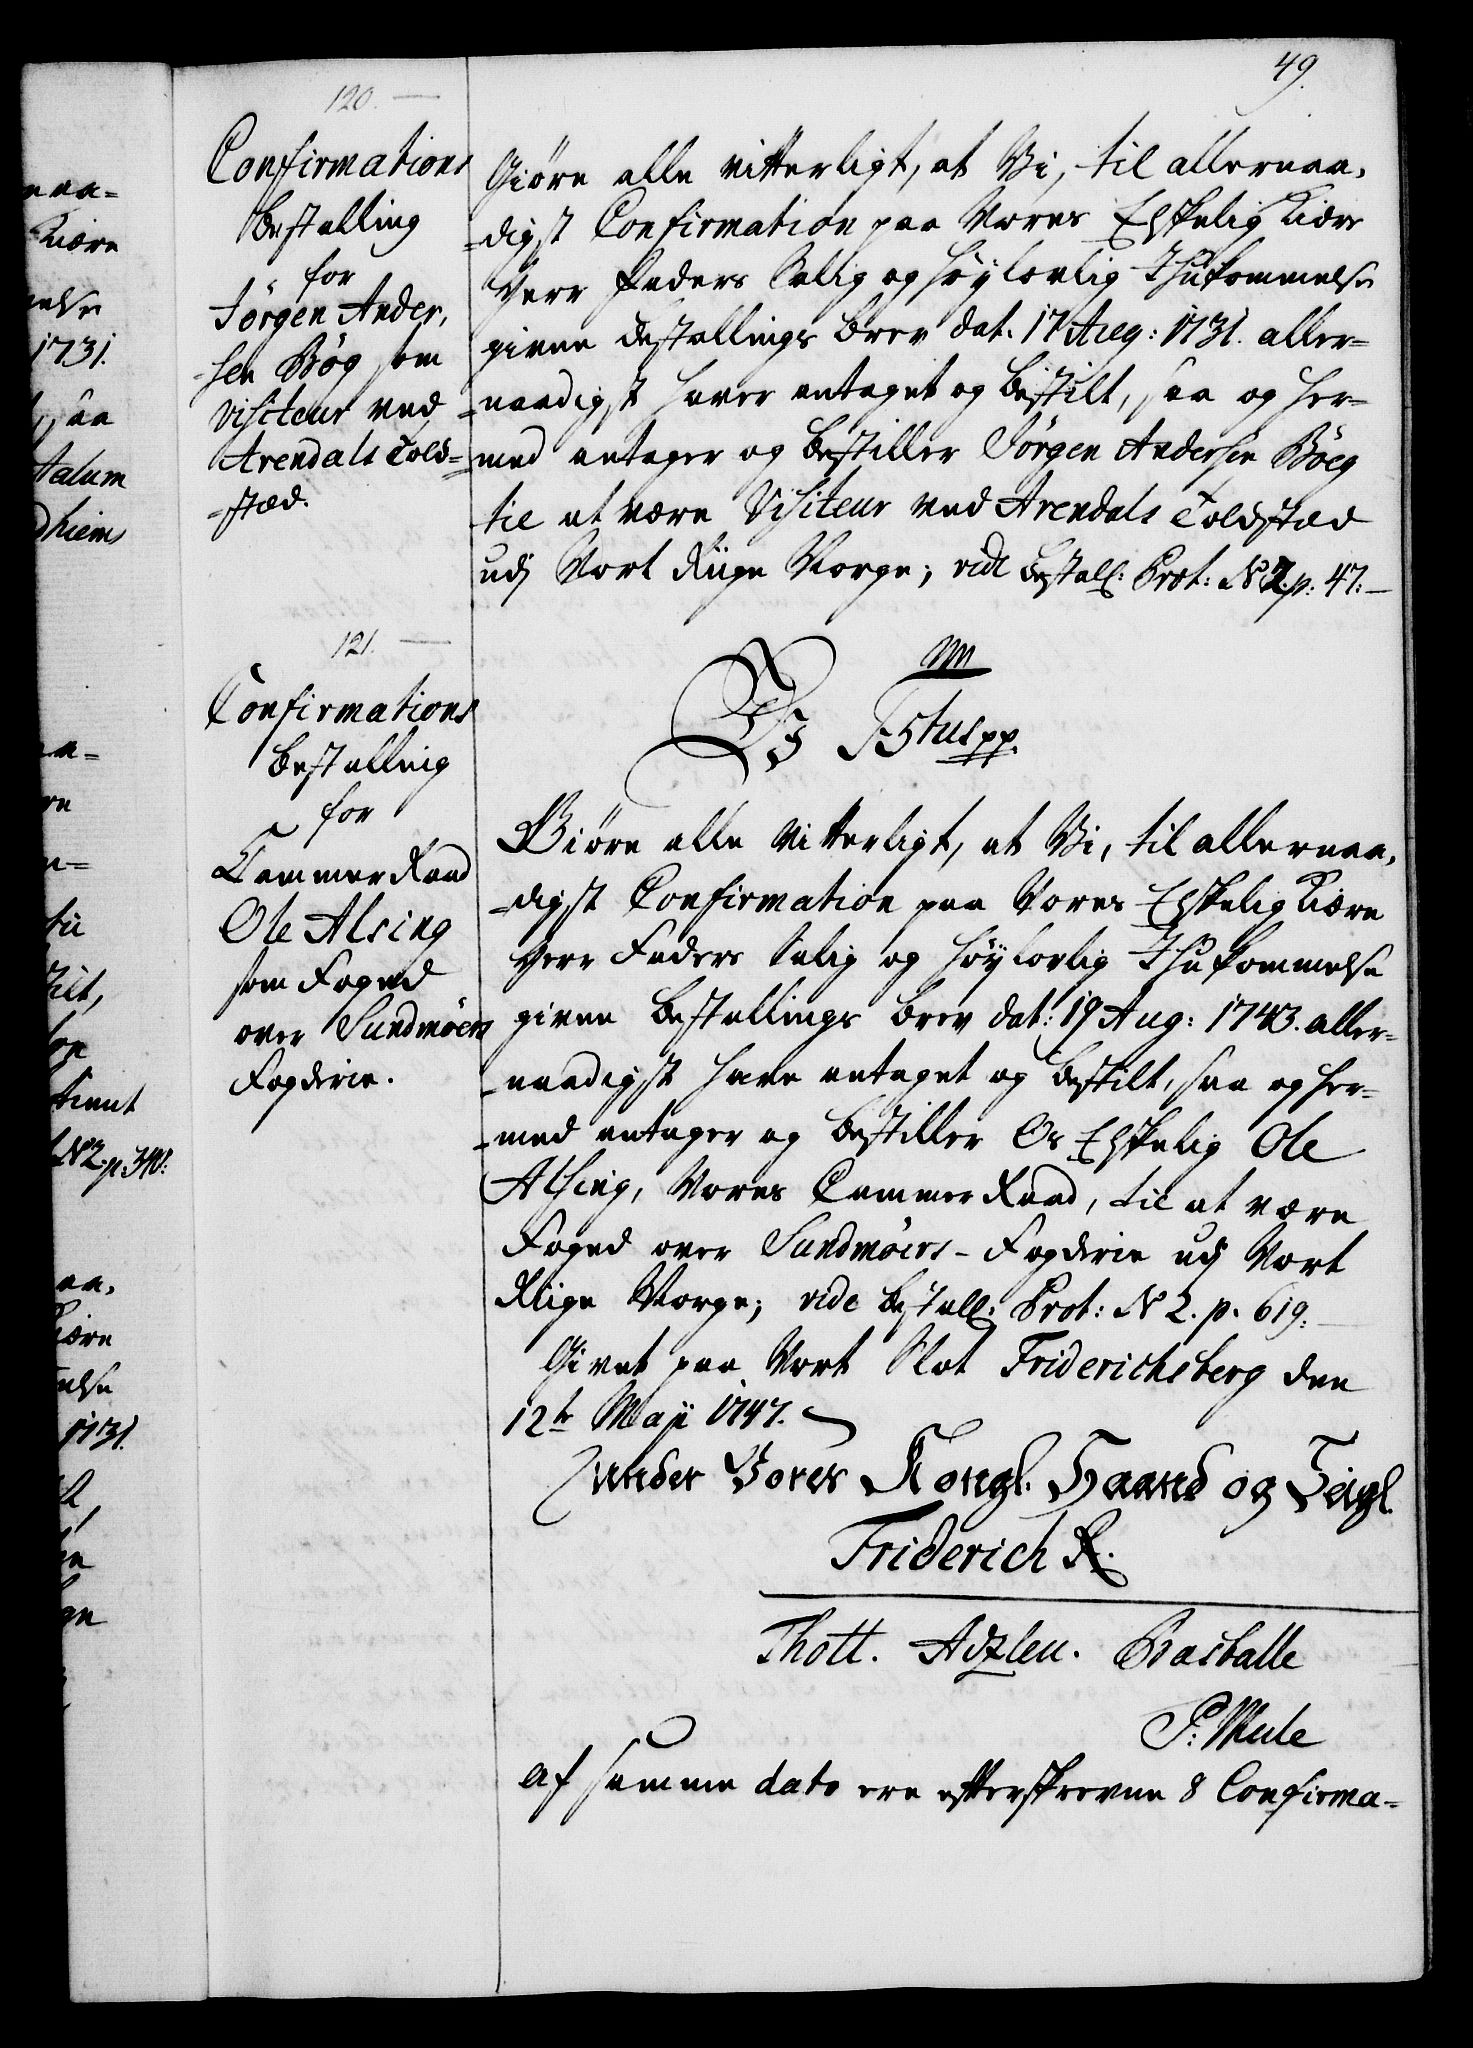 49.
120.
Confirmations
Bestalling
for
Jörgen Ander,
-sen Bög som
Visiteur ved
Arendals Told-
-stæd.
Giöre alle vitterligt, at Vi, til allernaa,
-digst Confirmation paa Vores Elskelig Kiære
Herr Faders Salig og Höylovlig Ihukommelse
givne Bestallings Brev dat. 17 Aug: 1731. aller-
-naadigst haver antaget og bestilt, saa og her-
-med antager og bestiller Jörgen Andersen Böeg
til at være Visiteur ved Arendals Toldstæd
udj Vort Riige Norge; vide Bestall: Prot: N 2. p: 47.
121.
Confirmations
Bestalling
for
Cammer Raad
Ole Alsing
som Foged
over Sundmöers
Fogderie.
Vj F 5tus pp.
Giöre alle Vitterligt, at Vi, til allernaa,
-digst Confirmation paa Vores Elskelig Kiære
Herr Faders Salig og Höylovlig Ihukommelse
givne Bestallings Brev dat: 19 Aug: 1743. aller-
-naadigst have antaget og bestilt, saa og her-
-med antager og bestiller Os Elskelig Ole
Alsing, Vores Cammer Raad, til at være
Foged over Sundmöers-Fogderie udj Vort
Riige Norge; vide Bestall: Prot: N 2. p. 619.
Givet paa Vort Slot Friderichsberg den
12te Maji 1747.
Under Vores Kongl. Haand og Seigl.
Friderich R.
Thott. Adzleu. Grasballe
P: Mule
Af samme dato ere efterskrevne 8 Confirma-
naa-
Kiære
melse
1731.
saa
Stalum
dhiem
N 2. p. 340:
1731.